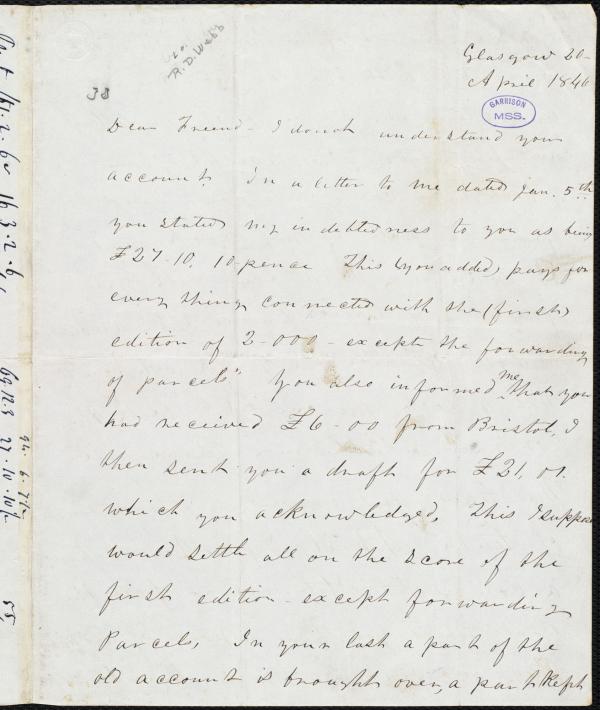 to.
R. D. Webb
38
Glasgow 20-
April 1846
GARRISON
MSS.
Dear Friend - I do not understand your
account. In a letter to me dated Jan. 5th
you stated my indebtedness to you as being
£27-10. 10-pence This (you added) pays for
every thing connected with the (first)
edition of 2-000 - except the forwarding
of parcels" You also informed me that you
had received £6-00 from Bristol, I
then sent you a draft for £21. 01.
which you acknowledged, This I suppose
would settle all on the score of the
first edition - except forwarding
Parcels, In your last a part of the
old account is brought over, a part Kept